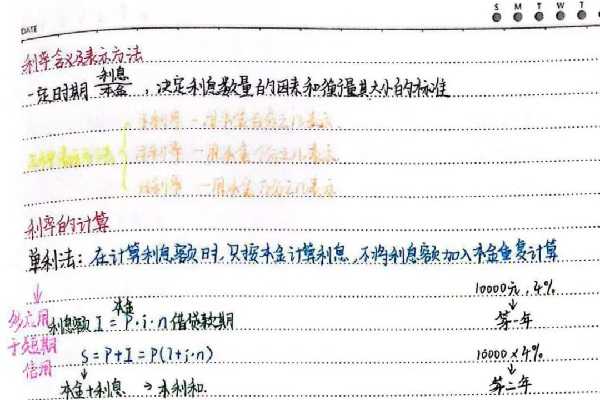 DATE
S M T W T
利率含义及表示方法
一定时期 利息/本金，决定利息数量的因素和衡量其大小的标准
年利率 一用本金百分之几表示
三种表示方法 月利率 一用本金千分之几表示
日利率 一用本金万分之几表示
利率的计算
单利法：在计算利息额时，只按本金计算利息，不将利息额加入本金重复计算
10000元，4%
本金
多应用于短期信用
利息额 I = P·i·n 借贷款期
第一年
S = P+I = P(1+i·n)
10000×4%
本金+利息 → 本利和
第二年